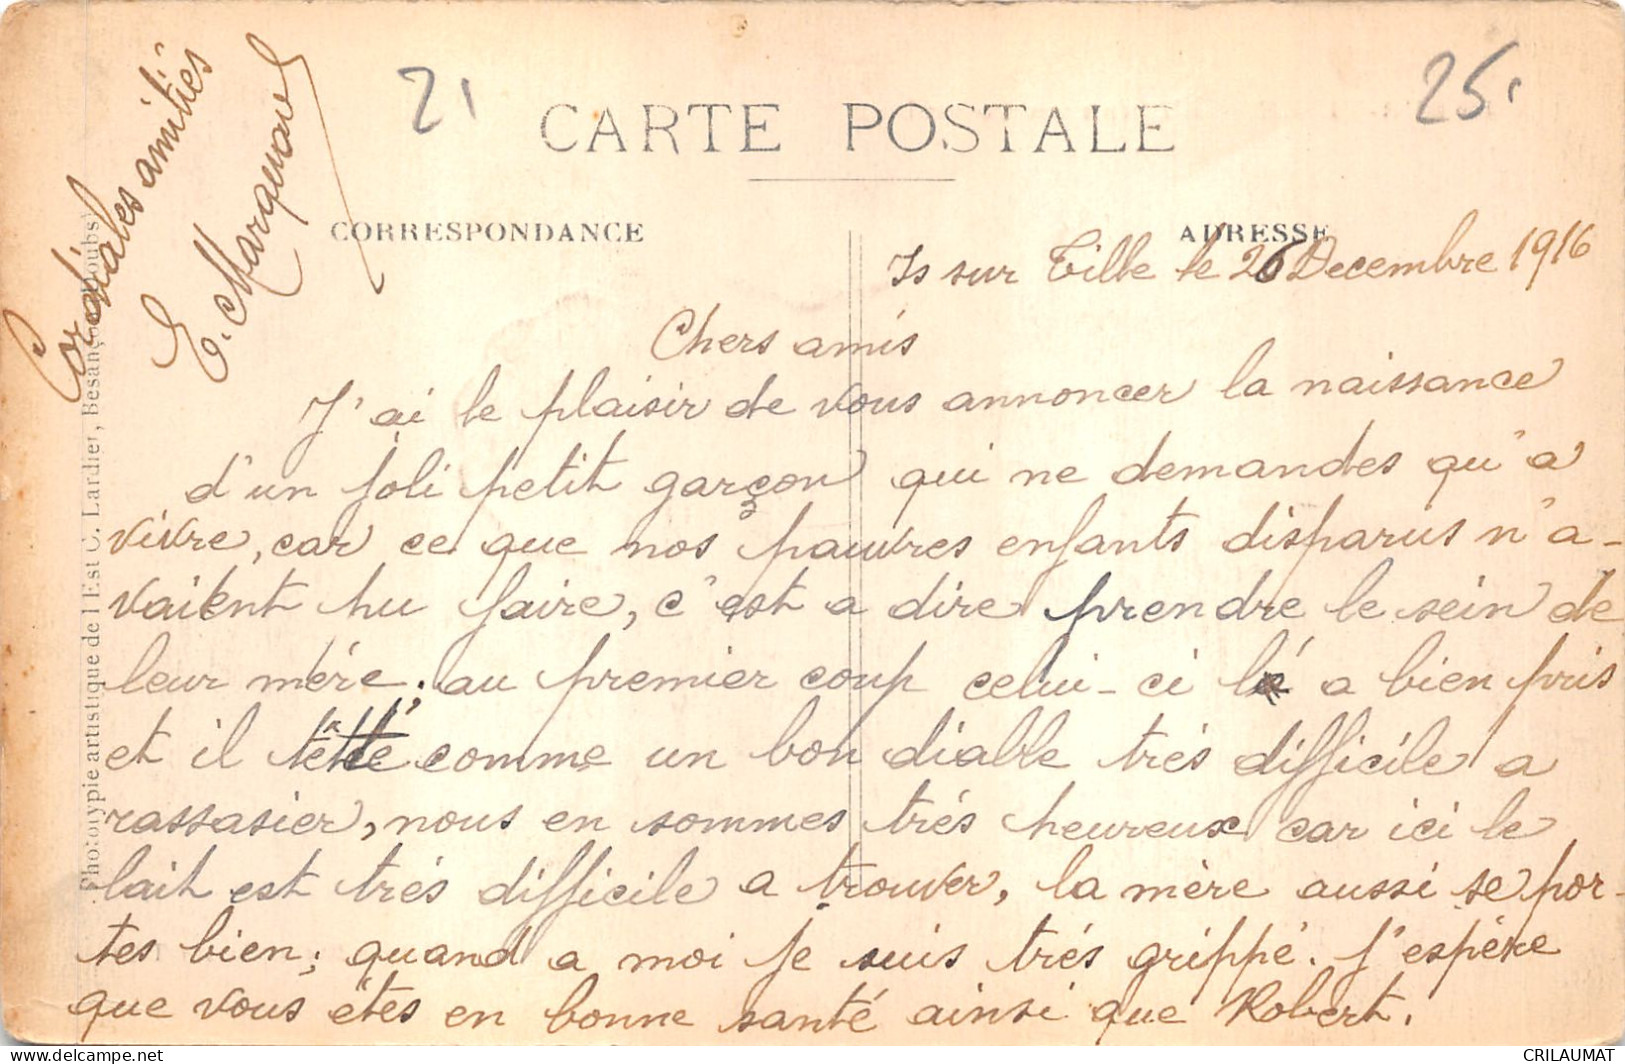 21
25.
CARTE POSTALE
CORRESPONDANCE
ADRESSE
Is sur Tille le 26 Decembre 1916
Chers amis
J'ai le plaisir de vous annoncer la naissance
d'un joli petit garçon qui ne demandes qu'a
vivre, car ce que nos pauvres enfants disparus n'a-
vaient pu faire, c'est a dire prendre le sein de
leur mére. au premier coup celui-ci l'a bien pris
et il tête comme un bon diable trés difficile a
rassasier, nous en sommes trés heureux car ici le
lait est trés difficile a trouver, la mère aussi se por-
tes bien; quand a moi je suis trés grippé. J'espère
que vous êtes en bonne santé ainsi que Robert.
Cordiales amitiés
E.
Phototypie artistique de l'Est C. Lardier, Besançon (Doubs)
CRILAUMAT